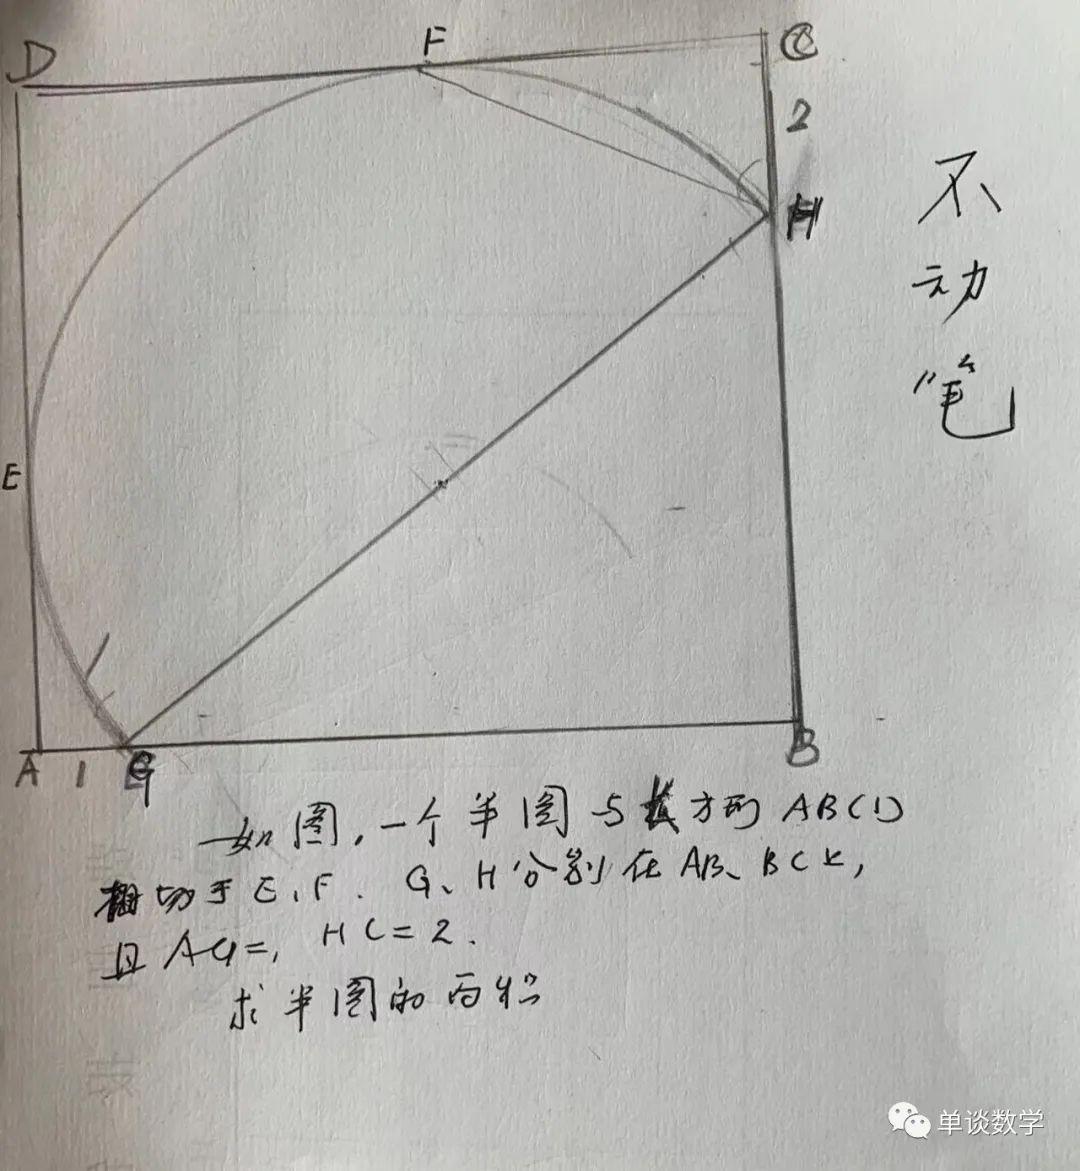 D
F
C
2
H
不
动
笔
E
A 1 G
B
如图,一个半圆与长方形 ABCD
相切于 E, F. G、H分别在AB、BC上,
且 AG=1, HC=2.
求半圆的面积
单谈数学